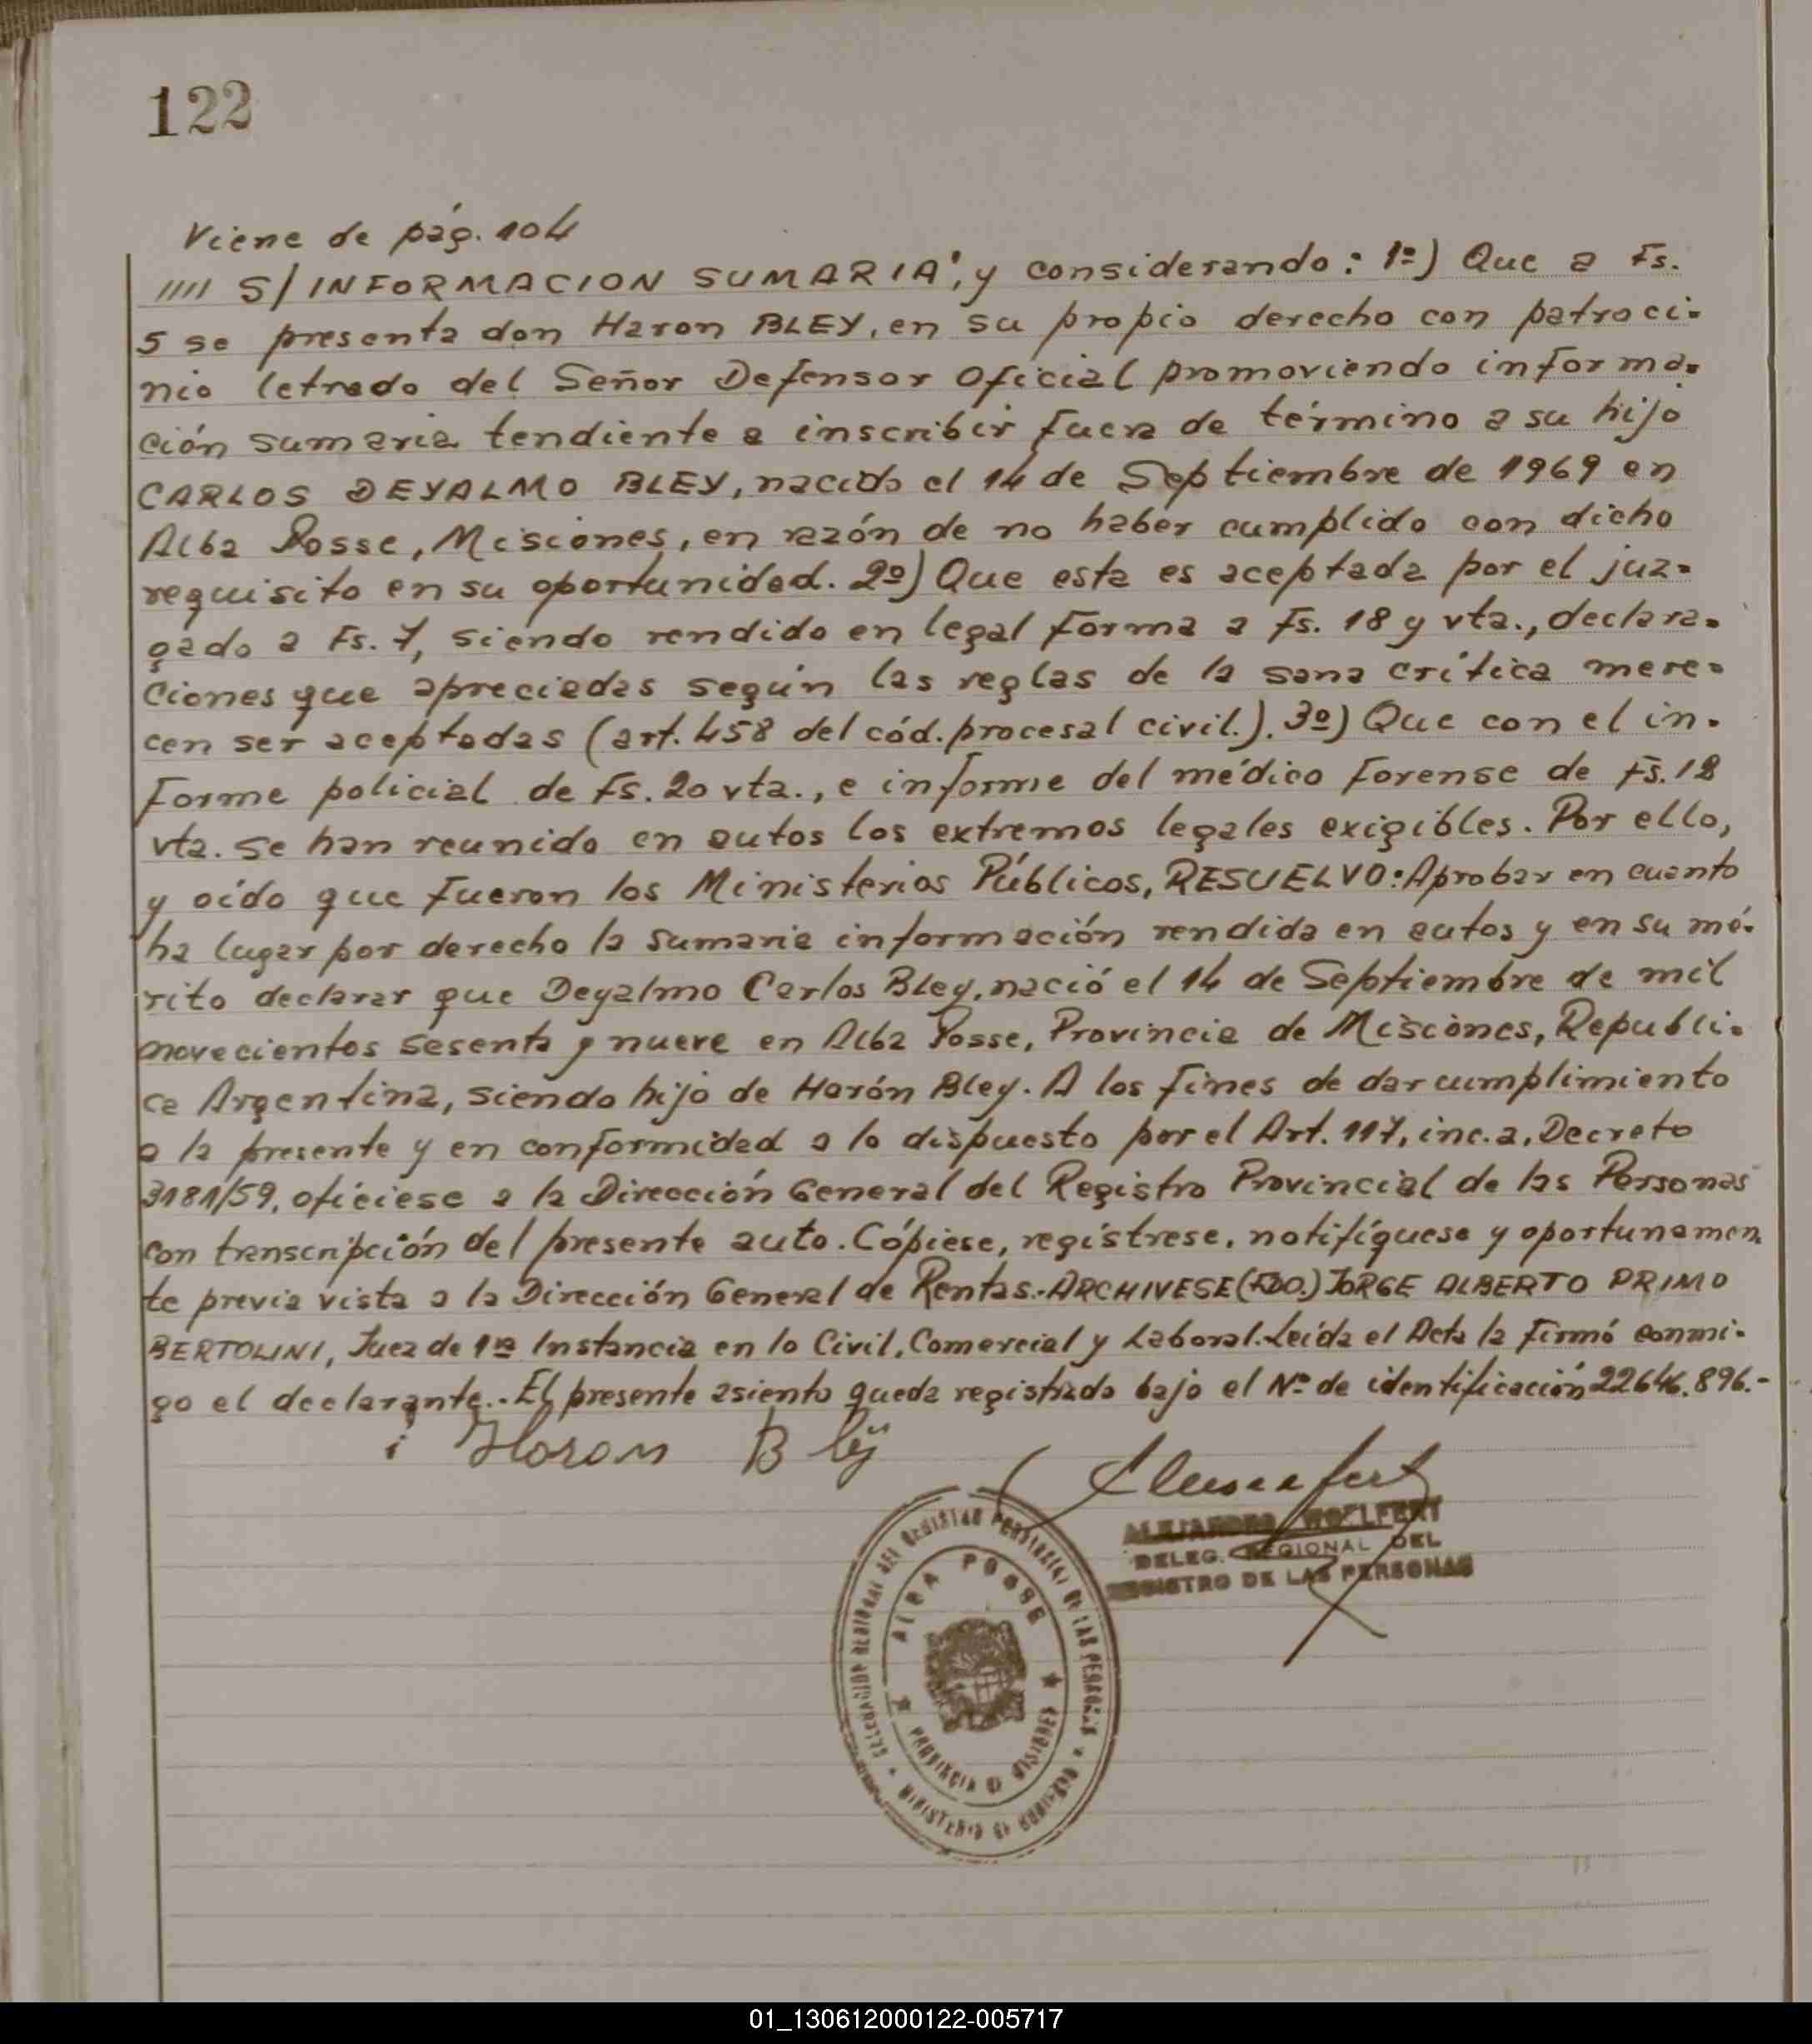 122
Viene de pág. 104
//// S/INFORMACION SUMARIA", y considerando: 1º) Que a Fs.
5 se presenta don Haron BLEY, en su propio derecho con patroci-
nio letrado del Señor Defensor Oficial promoviendo informa-
ción sumaria tendiente a inscribir fuera de término a su hijo
CARLOS DEYALMO BLEY, nacido el 14 de Septiembre de 1969 en
Alba Posse, Misiones, en razón de no haber cumplido con dicho
requisito en su oportunidad. 2º) Que esta es aceptada por el juz-
gado a Fs. 7, siendo rendido en legal forma a Fs. 18 y vta., declara-
ciones que apreciadas según las reglas de la sana crítica mere-
cen ser aceptadas (art. 458 del cód. procesal civil.). 3º) Que con el in-
forme policial de Fs. 20 vta., e informe del médico forense de Fs. 18
vta. se han reunido en autos los extremos legales exigibles. Por ello,
y oído que fueron los Ministerios Públicos, RESUELVO: Aprobar en cuanto
ha lugar por derecho la sumaria información rendida en autos y en su mé-
rito declarar que Deyalmo Carlos Bley, nació el 14 de Septiembre de mil
novecientos sesenta y nueve en Alba Posse, Provincia de Misiones, Republi-
ca Argentina, siendo hijo de Harón Bley. A los fines de dar cumplimiento
a la presente y en conformidad a lo dispuesto por el Art. 117, inc. a, Decreto
3181/59, ofíciese a la Dirección General del Registro Provincial de las Personas
con transcripción del presente auto. Cópiese, regístrese, notifíquese y oportunamen-
te previa vista a la Dirección General de Rentas.- ARCHIVESE (FDO.) JORGE ALBERTO PRIMO
BERTOLINI, Juez de 1ra Instancia en lo Civil, Comercial y Laboral. Leída el Acta la firmó conmi-
go el declarante.. El presente asiento queda registrado bajo el Nº de identificación 22.646.896.-
Horon Bley
ALEJANDRO WOELFERT
DELEG. REGIONAL DEL
REGISTRO DE LAS PERSONAS
DELEGACION REGIONAL DEL REGISTRO PROVINCIAL DE LAS PERSONAS
ALBA POSSE
PROVINCIA DE MISIONES
MINISTERIO DE GOBIERNO
01_130612000122-005717